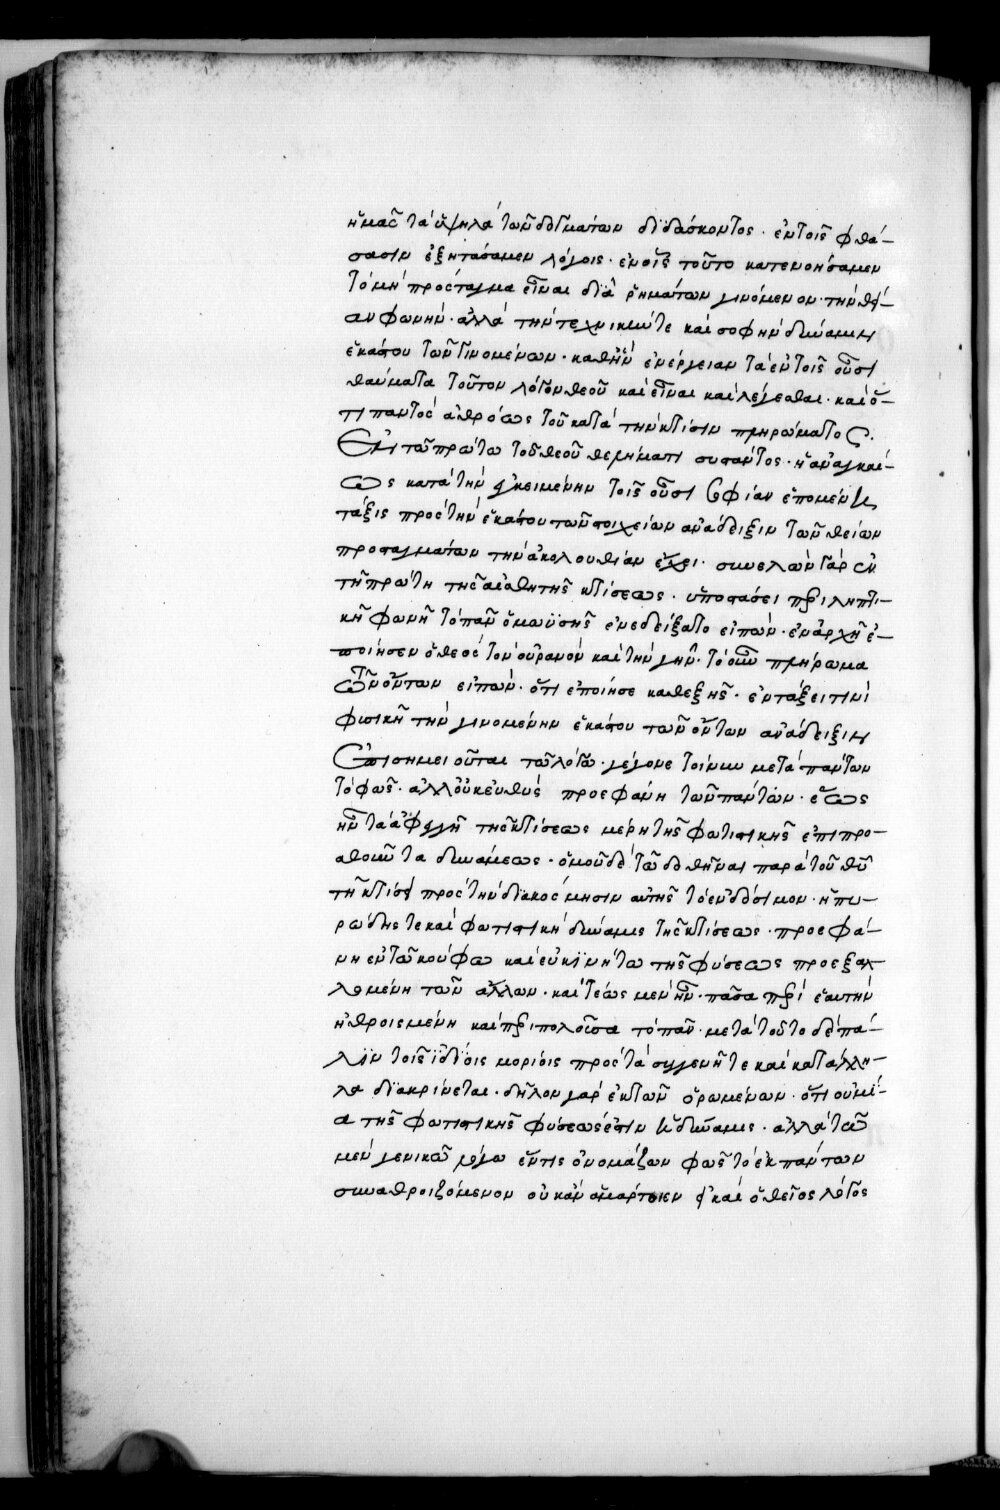 ἡμᾶς τὰ ὑψηλὰ τῶν δογμάτων διδάσκοντος · ἐν τοῖς φθά-
σασιν ἐξητάσαμεν λόγοις · ἐν οἷς τοῦτο κατενοήσαμεν
τὸ μὴ πρόσταγμα εἶναι διὰ ῥημάτων γινόμενον · τὴν θεί-
αν φωνήν · ἀλλὰ τὴν τεχνικήν τε καὶ σοφὴν δύναμιν
ἑκάστου τῶν γινομένων · καθ' ἣν ἐνέργειαν τὰ ἐν τοῖς οὖσι
θαύματα τοῦτον λόγον θεοῦ καὶ εἶναι καὶ λέγεσθαι · καὶ ὅ-
τι παντὸς ἀθρόως τοῦ κατὰ τὴν κτίσιν πληρώματος.
Ἐν τῷ πρώτῳ τοῦ θεοῦ θελήματι συστάντος · ἡ ἀναγκαί-
ως κατὰ τὴν ἐγκειμένην τοῖς οὖσι σοφίαν ἑπομένη
τάξις πρὸς τὴν ἑκάστου τῶν στοιχείων ἀνάδειξιν τῶν θείων
προσταγμάτων τὴν ἀκολουθίαν ἔχει · συνελὼν γὰρ ἐν
τῇ πρώτῃ τῆς αἰσθητῆς κτίσεως · ὑποστάσει περιληπτι-
κῇ φωνῇ τὸ πᾶν ὁ μωϋσῆς ἐνεδείξατο εἰπών · ἐν ἀρχῇ ἐ-
ποίησεν ὁ θεὸς τὸν οὐρανὸν καὶ τὴν γῆν · τὸ οὖν πλήρωμα
τῶν ὄντων εἰπών · ὅτι ἐποίησε καθεξῆς · ἐν τάξει τινὶ
φυσικῇ τὴν γινομένην ἑκάστου τῶν ὄντων ἀνάδειξιν
ἐπισημειοῦται τῷ λόγῳ · γέγονε τοίνυν μετὰ πάντων
τὸ φῶς · ἀλλ' οὐκ εὐθὺς προεφάνη τῶν πάντων · ἕως
ἦν τὰ ἀφεγγῆ τῆς κτίσεως μέρη τῆς φωτιστικῆς ἐπιπρο-
σθοῦντα δυνάμεως · ὁμοῦ δὲ τῷ δοθῆναι παρὰ τοῦ θῦ
τῇ κτίσει πρὸς τὴν διακόσμησιν αὐτῆς τὸ ἐνδόσιμον · ἡ πυ-
ρώδης τε καὶ φωτιστικὴ δύναμις τῆς κτίσεως · προεφά-
νη ἐν τῷ κούφῳ καὶ εὐκινήτῳ τῆς φύσεως προεξαλ-
λομένη τῶν ἄλλων · καὶ τέως μὲν ἦν · πᾶσα περὶ ἑαυτὴν
ἠθροισμένη καὶ περιπολοῦσα τὸ πᾶν · μετὰ τοῦτο δὲ πά-
λϊν τοῖς ἰδίοις μορίοις πρὸς τὰ συγγενῆ τε καὶ κατάλλη-
λα διακρίνεται · δῆλον γὰρ ἐκ τῶν ὁρωμένων · ὅτι οὐ μί-
α τῆς φωτιστικῆς φύσεώς ἐστιν ἡ δύναμις · ἀλλὰ τῷ
μὲν γενικῷ λόγῳ ἔν τις ὀνομάζων φῶς τὸ ἐκ πάντων
συναθροιζόμενον οὐκ ἂν ἁμάρτοιεν εἰ καὶ ὁ θεῖος λόγος